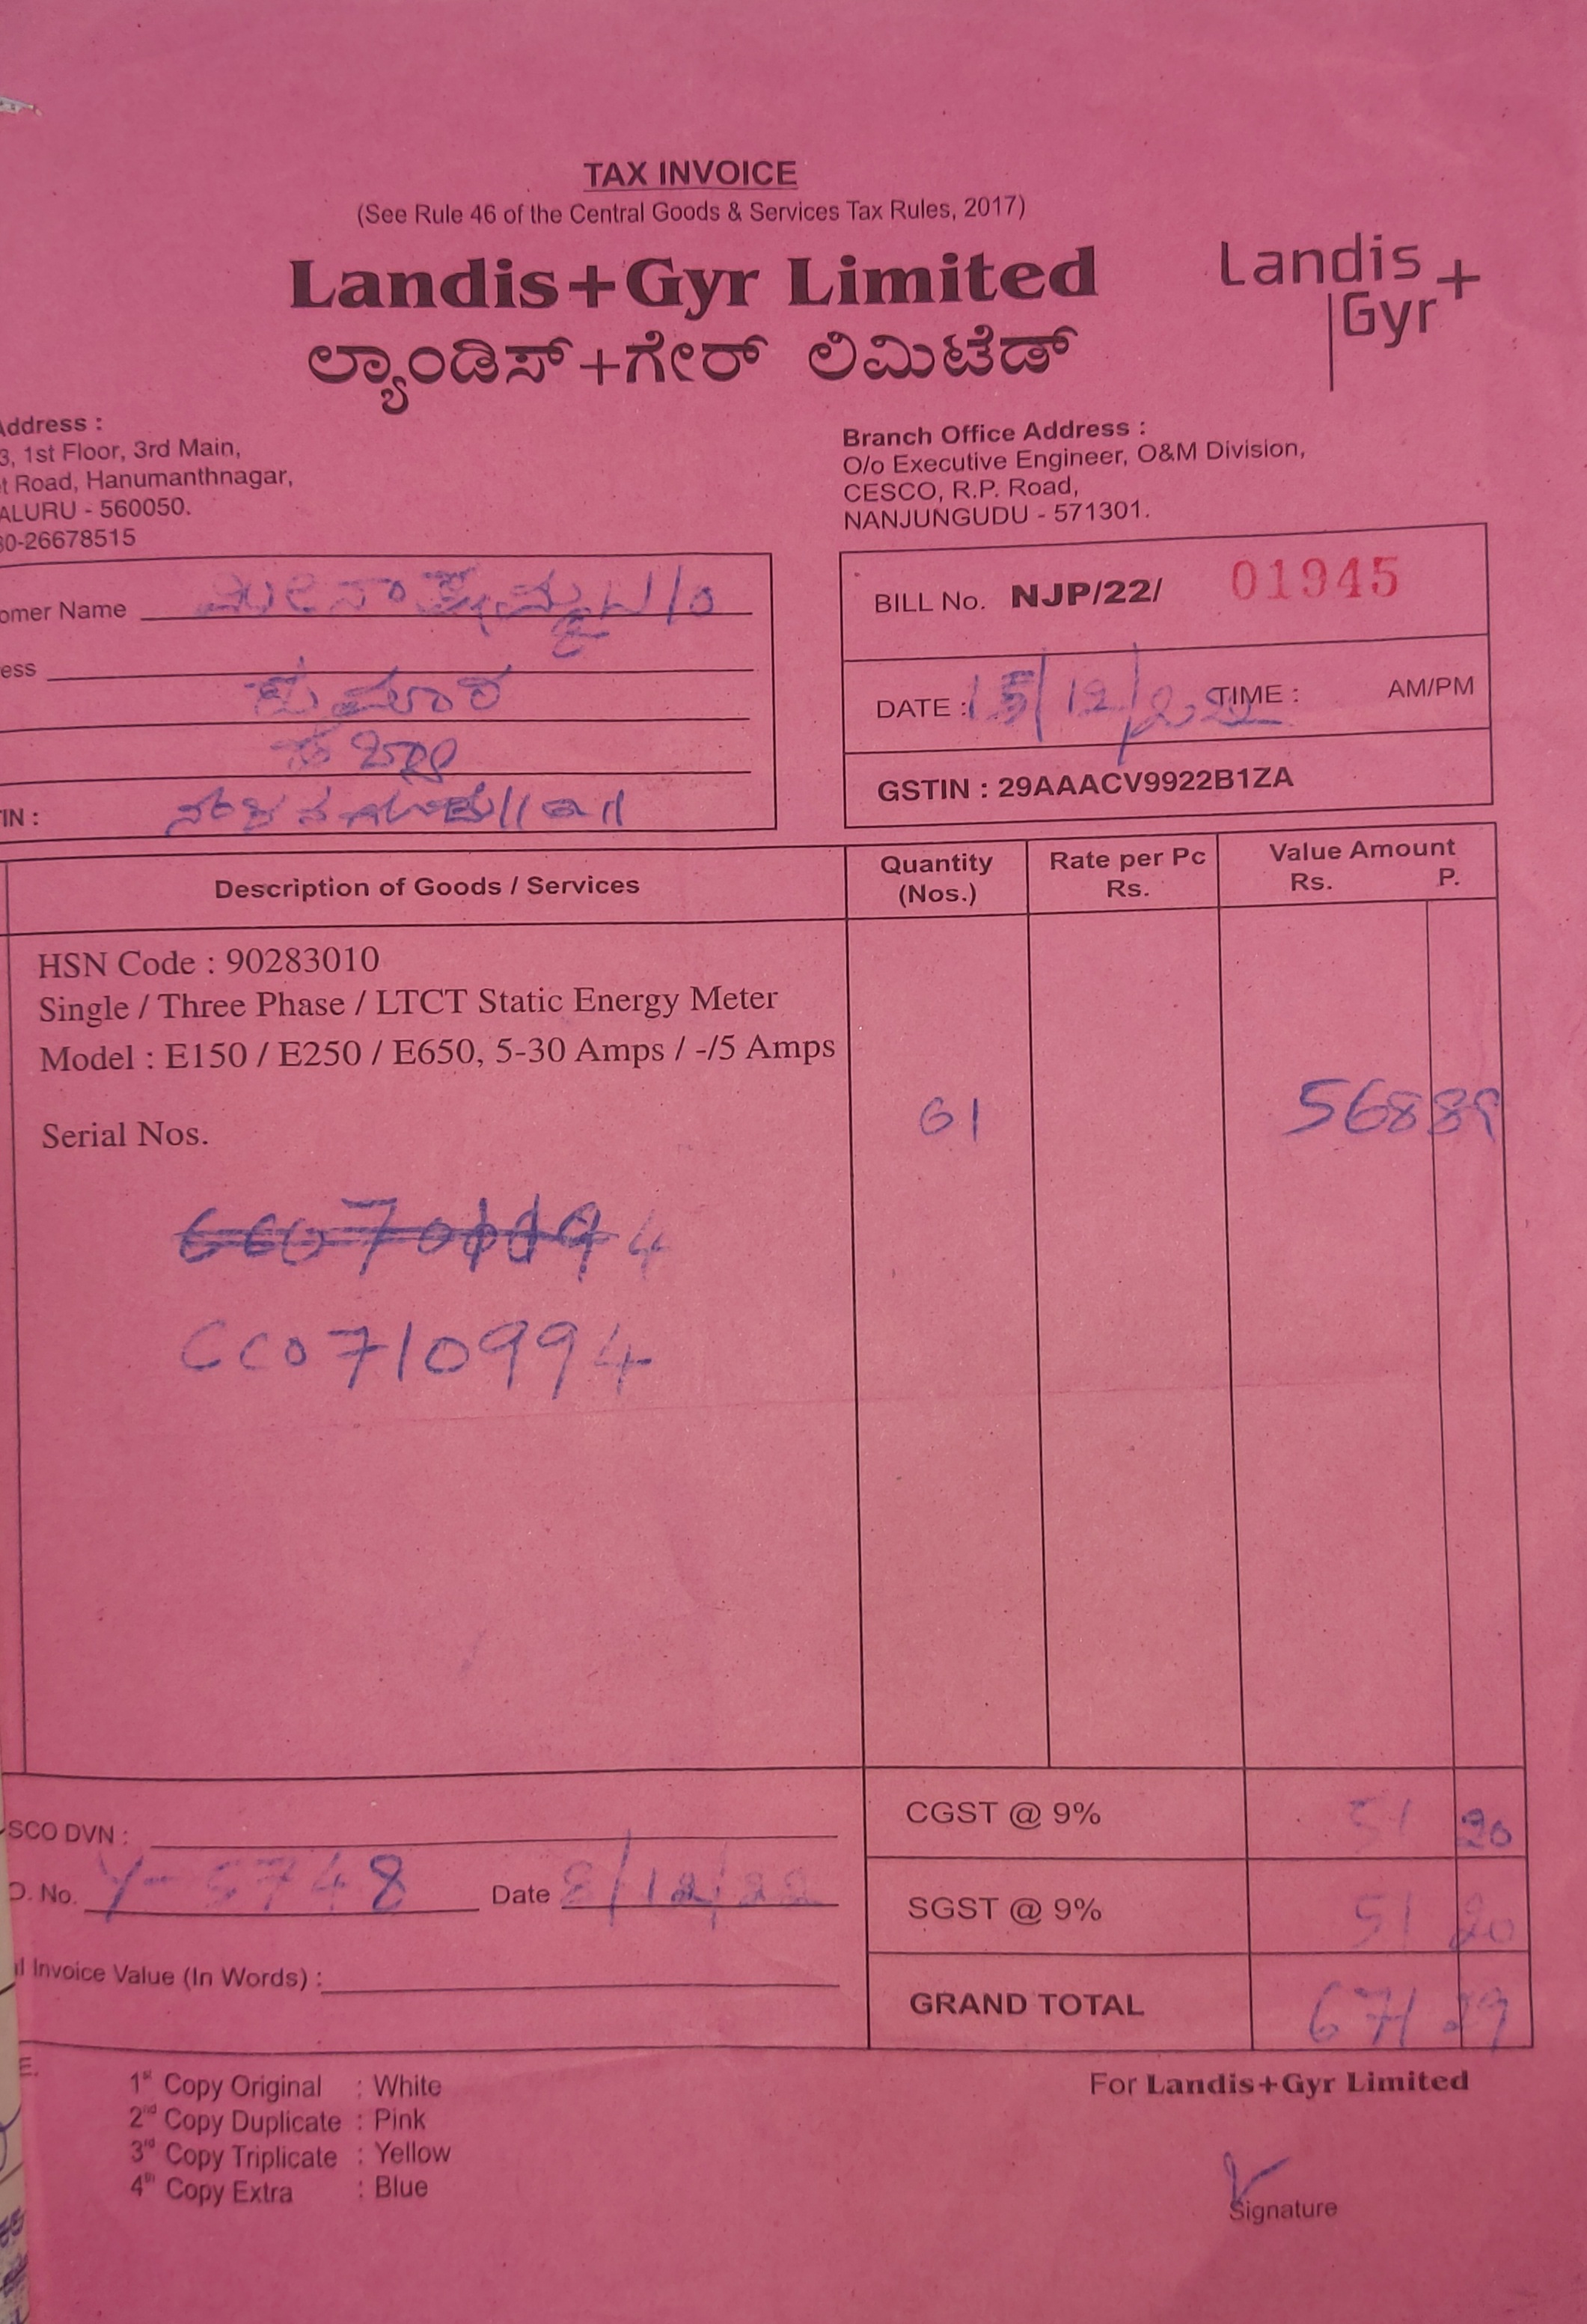 TAX INVOICE
(See Rule 46 of the Central Goods & Services Tax Rules, 2017)
Landis+Gyr Limited
ಲ್ಯಾಂಡಿಸ್+ಗೇರ್ ಲಿಮಿಟೆಡ್
Landis+
Gyr
Address :
3, 1st Floor, 3rd Main,
t Road, Hanumanthnagar,
ALURU - 560050.
80-26678515
Branch Office Address :
O/o Executive Engineer, O&M Division,
CESCO, R.P. Road,
NANJUNGUDU - 571301.
omer Name
ess
ಕುಮಾರ
IN :
BILL No. NJP/22/ 01945
DATE : 15/12/22 TIME : AM/PM
GSTIN : 29AAACV9922B1ZA
Description of Goods / Services
Quantity (Nos.)
Rate per Pc Rs.
Value Amount Rs. P.
HSN Code : 90283010
Single / Three Phase / LTCT Static Energy Meter
Model : E150 / E250 / E650, 5-30 Amps / -/5 Amps
Serial Nos. 01 568 89
CC0710994
CGST @ 9% 51 20
SCO DVN :
O. No. Y-5748 Date 8/12/22
SGST @ 9% 51 20
l Invoice Value (In Words) :
GRAND TOTAL 671 29
E.
1st Copy Original : White
2nd Copy Duplicate : Pink
3rd Copy Triplicate : Yellow
4th Copy Extra : Blue
For Landis+Gyr Limited
Signature